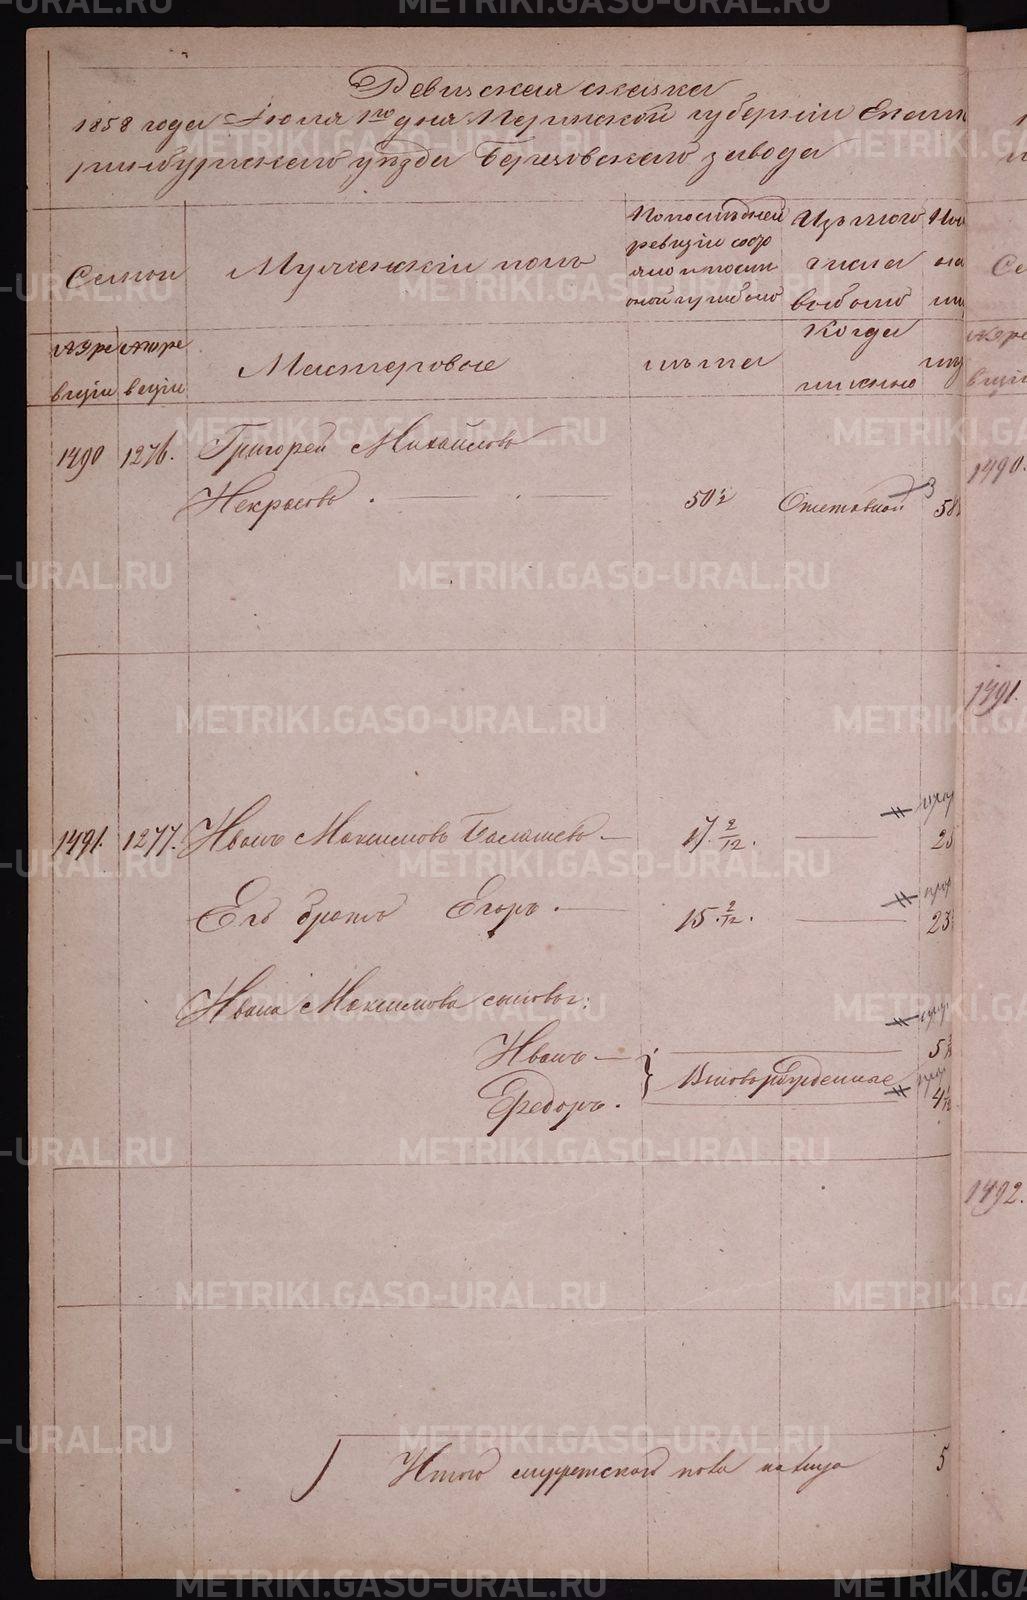 Ревизская сказка
1858 года Июля 1го дня Пермской губернии Екате
ринбургскаго уезда Березовскаго завода
Семьи
Мужескій полъ
По последней
ревизіи состо
яло и после
оной прибыло
Изъ того
числа
выбыло
Ныне
на
Когда
Мастеровые
лета
именно
ревизіи
ревизіи
1490 1276. Григорей Михайловъ
Некрасовъ . 50½ Отставной 3 58
1491. 1277. Иванъ Максимовъ Балашевъ 17. 2/12. 25
Его братъ Егоръ . 15. 2/12. 23
Ивана Максимова сыновья:
Иванъ 5
Новорожденные
Федоръ . 4
Итого мужескаго пола на лицо 5
1490.
1491.
1492.
METRIKI.GASO-URAL.RU